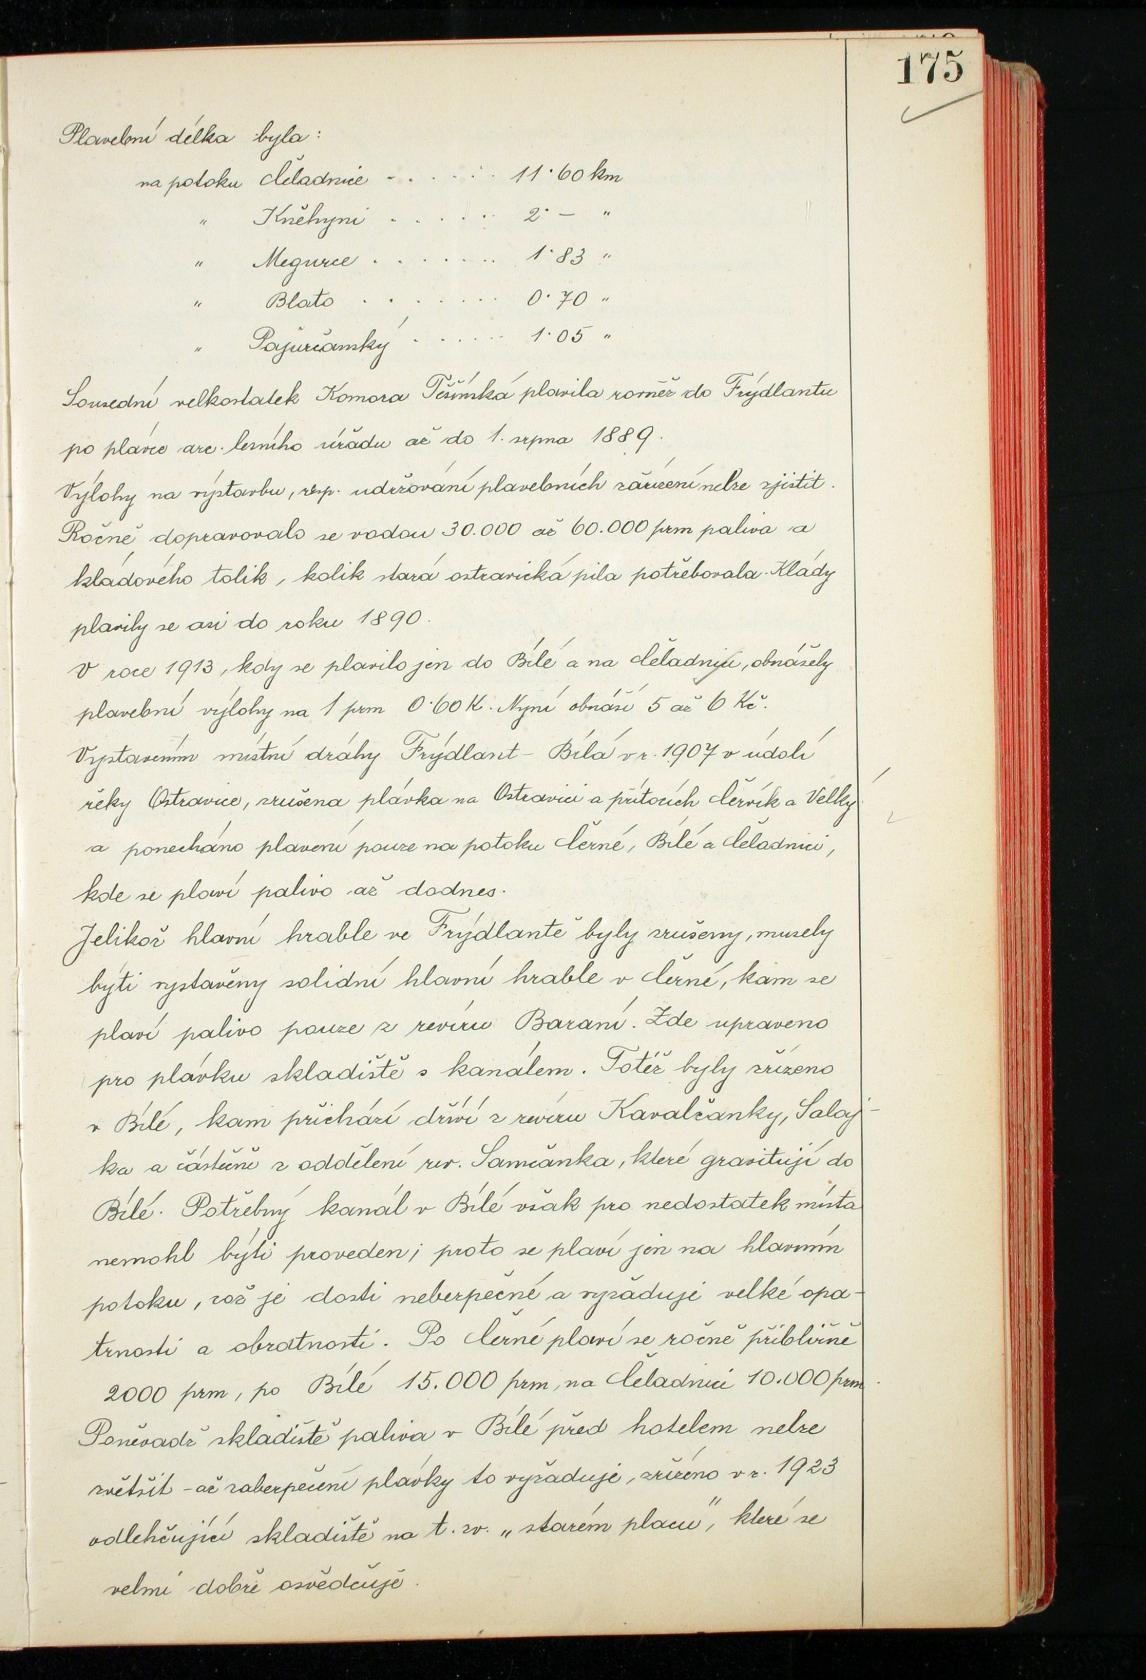 175
Plavební délka byla:
na potoku Čeladnice - . . . . . 11·60 km
" Kněhyni . . . . . . 2· — "
" Megurce . . . . . . . 1·83 "
" Blato . . . . . . . 0·70 "
" Pajurčanský . . . . . . 1·05 "
Sousední velkostatek Komora Těšínská plavila rovněž do Frýdlantu
po plávce arc. lesního úřadu až do 1. srpna 1889.
Výlohy na výstavbu, resp. udržování plavebních zařízení nelze zjistit.
Ročně dopravovalo se vodou 30.000 až 60.000 prm paliva a
kládového tolik, kolik stará ostravická pila potřebovala. Klády
plavily se asi do roku 1890.
V roce 1913, kdy se plavilo jen do Bílé a na Čeladnici, obnášely
plavební výlohy na 1 prm 0·60 K. Nyní obnáší 5 až 6 Kč.
Vystavením místní dráhy Frýdlant - Bílá v r. 1907 v údolí
řeky Ostravice, zrušena plávka na Ostravici a přítocích Červík a Velký
a ponecháno plavení pouze na potoku Černé, Bílé a Čeladnici,
kde se plaví palivo až dodnes.
Jelikož hlavní hrable ve Frýdlantě byly zrušeny, musely
býti vystavěny solidní hlavní hrable v Černé, kam se
plaví palivo pouze z revíru Baraní. Zde upraveno
pro plávku skladiště s kanálem. Totéž byly zřízeno
v Bílé, kam přichází dříví z revíru Kavalčanky, Salaj-
ka a částečně z oddělení rev. Samčanka, které gravitují do
Bílé. Potřebný kanál v Bílé však pro nedostatek místa
nemohl býti proveden; proto se plaví jen na hlavním
potoku, což je dosti nebezpečné a vyžaduje velké opa-
trnosti a obratnosti. Po Černé plaví se ročně přibližně
2000 prm, po Bílé 15.000 prm, na Čeladnici 10.000 prm.
Poněvadž skladiště paliva v Bílé před hotelem nelze
zvětšit - ač zabezpečení plávky to vyžaduje, zřízeno v r. 1923
odlehčující skladiště na t. zv. „starém placu", které se
velmi dobře osvědčuje.